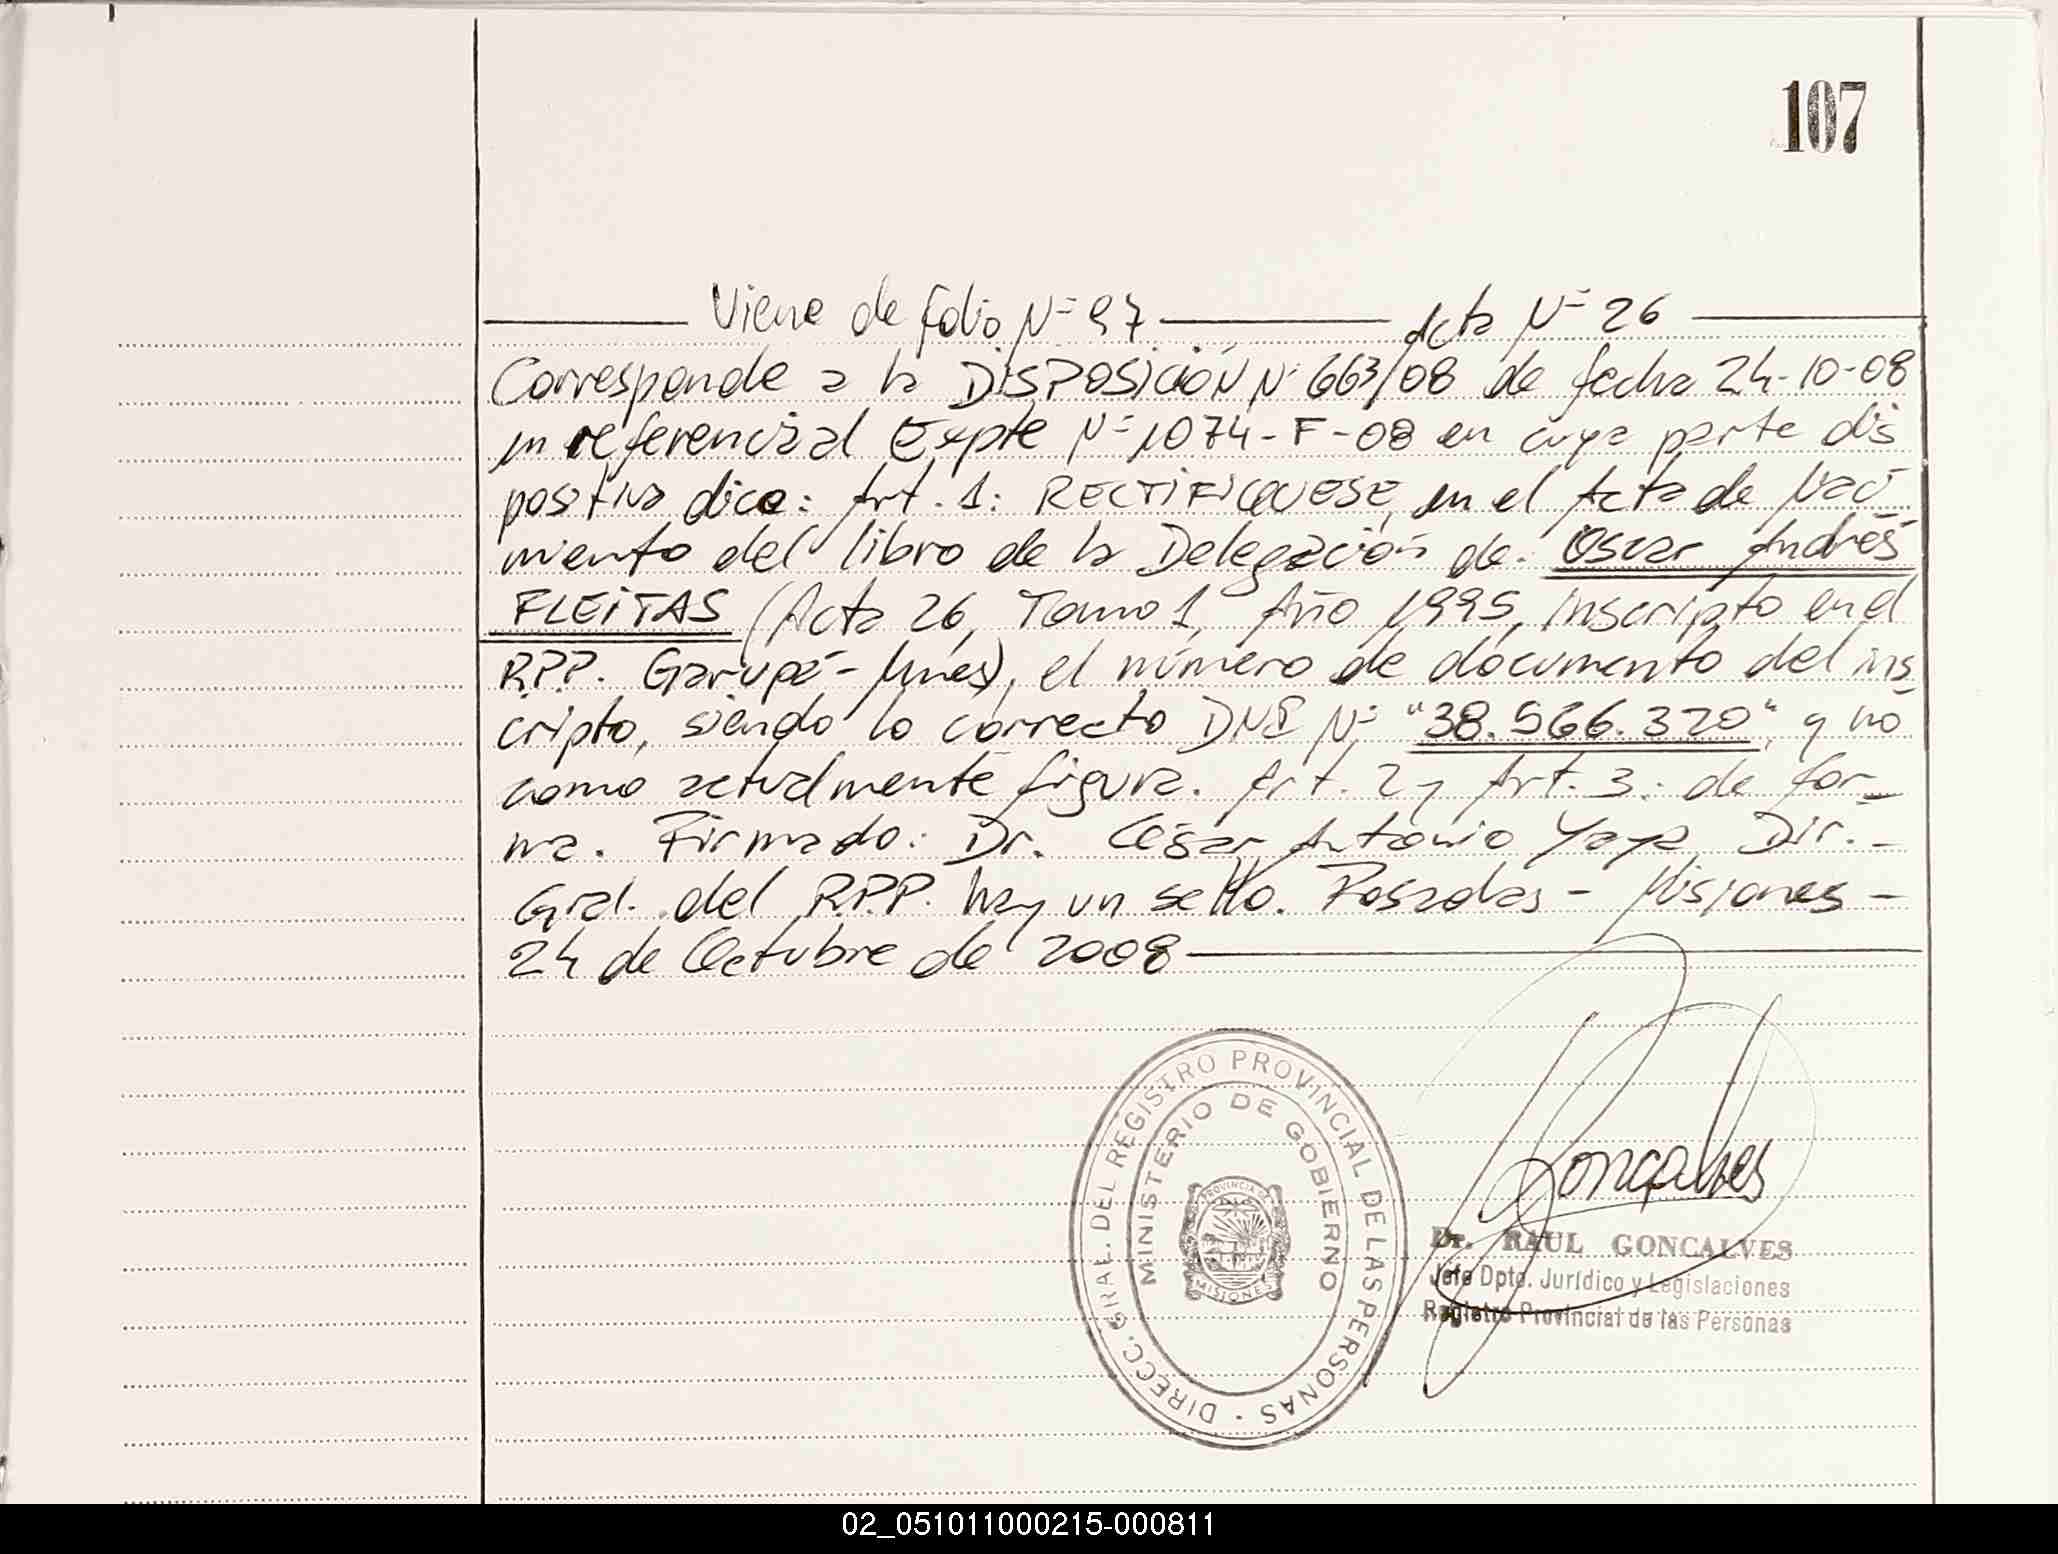 107
Viene de folio Nº 97 Acta Nº 26
Corresponde a la DISPOSICIÓN Nº 663/08 de fecha 24-10-08
en referencia al Expte Nº 1074-F-08 en cuya parte dis
positiva dice: Art. 1: RECTIFIQUESE, en el Acta de Naci
miento del libro de la Delegación de: Oscar Andrés
FLEITAS (Acta 26, Tomo 1, Año 1995, inscripto en el
R.P.P. Garupá - Mnes), el número de documento del ins
cripto, siendo lo correcto DNI Nº "38.566.320", y no
como actualmente figura. Art. 2 y Art. 3: de for-
ma. Firmado: Dr. César Antonio Yaya Dir.-
Gral. del R.P.P. hay un sello. Posadas - Misiones -
24 de Octubre de 2008
DIRECC. GRAL. DEL REGISTRO PROVINCIAL DE LAS PERSONAS ·
MINISTERIO DE GOBIERNO
PROVINCIA DE
MISIONES
Gonçalves
Dr. RAUL GONCALVES
Jefe Dpto. Jurídico y Legislaciones
Registro Provincial de las Personas
02_051011000215-000811